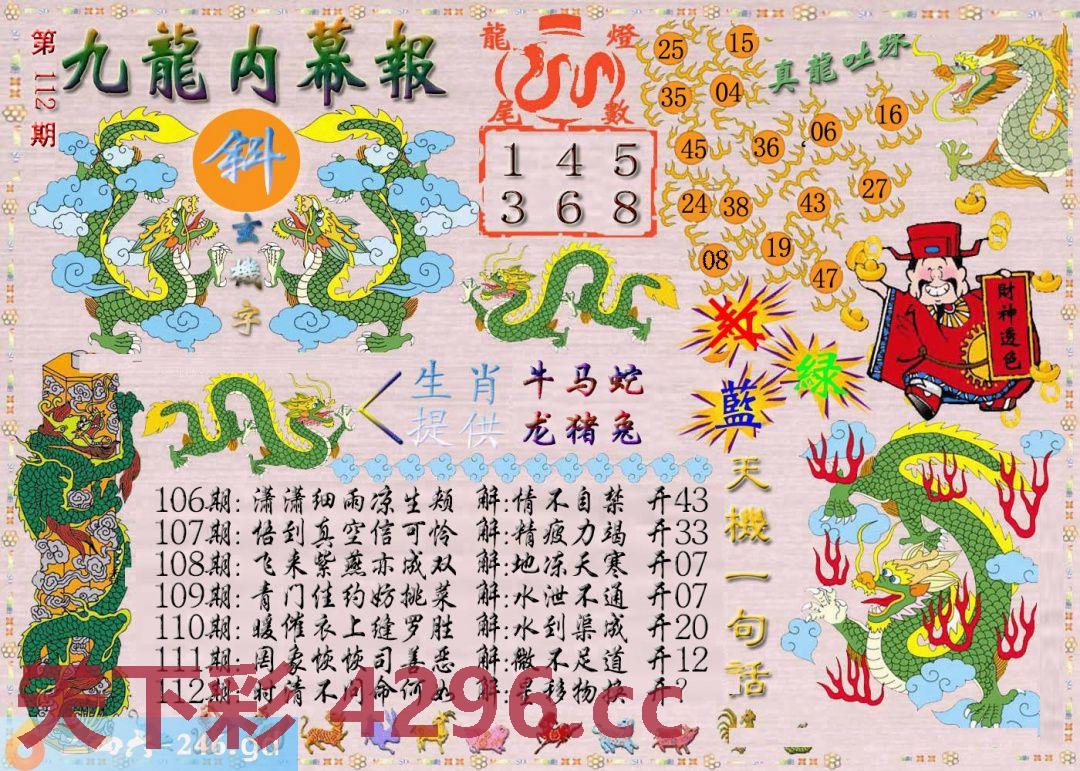 第112期
九龍内幕報
斜
玄機字
龍燈尾數
1 4 5
3 6 8
真龍吐珠
25 15
35 04
45 36 06 16
24 38 43 27
08 19 47
財神透色
紅
綠
藍
生肖提供
牛马蛇
龙猪兔
天機一句話
106期:潇潇细雨凉生颊 解:情不自禁 开43
107期:悟到真空信可怜 解:精疲力竭 开33
108期:飞来紫燕亦成双 解:地冻天寒 开07
109期:青门佳约妨挑菜 解:水泄不通 开07
110期:暖催衣上缝罗胜 解:水到渠成 开20
111期:罔象愦愦司善恶 解:微不足道 开12
112期:时清不问命何如 解:星移物换 开?
天下彩 4296.cc
246.gd